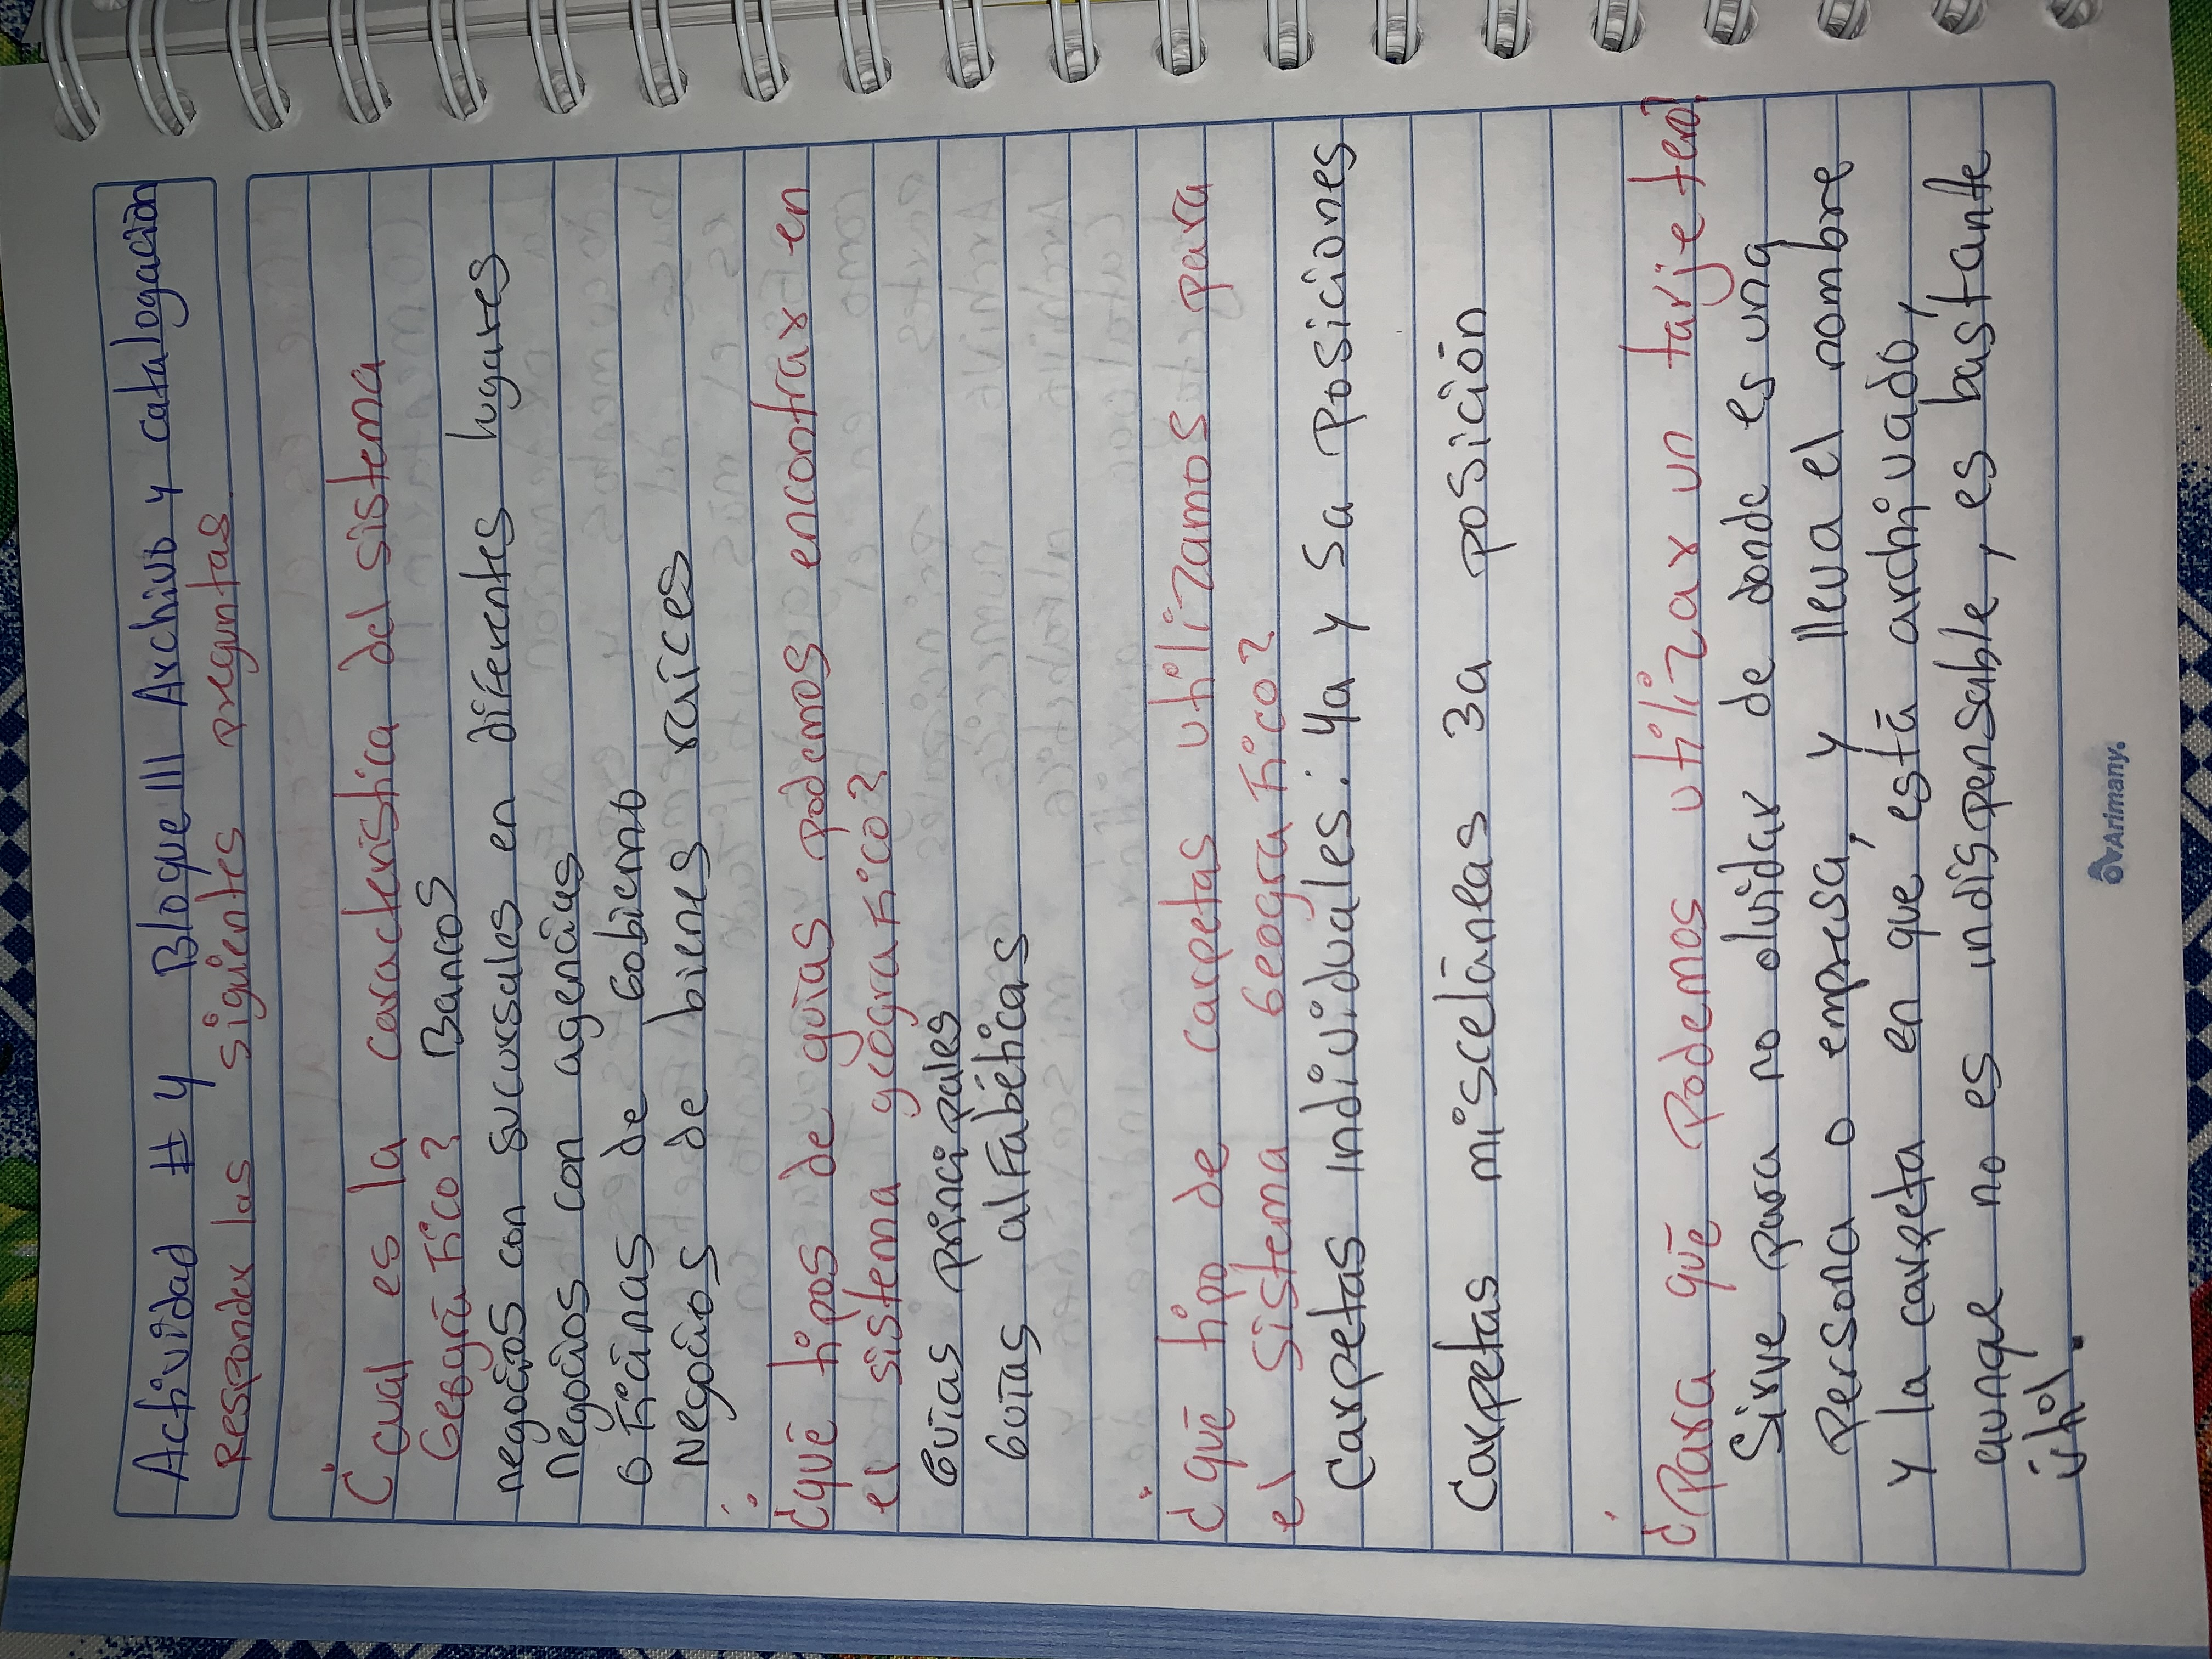 Actividad # 4 Bloque III Archivo y catalogación
Responder las siguientes preguntas.
¿ cual es la caracteristica del sistema
Geográfico? Bancos
negocios con sucursales en diferentes lugares
negocios con agencias
oficinas de Gobierno
Negocios de bienes raices
¿qué tipos de guías podemos encontrar en
el sistema geografico?
Guías principales
Guías alfabéticas
¿ qué tipo de carpetas utilizamos para
el sistema Geografico?
Carpetas individuales: 4a y 5a posiciones
Carpetas misceláneas 3a posición
¿Para qué podemos utilizar un tarjetero?
Sirve para no olvidar de donde es una
Persona o empresa, y lleva el nombre
y la carpeta en que está archivado,
aunqe no es indispensable, es bastante
útil.
Arimany.